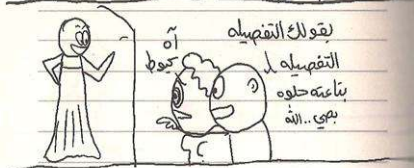 بقولك التفصيله
التفصيله
بتاعته حلوه
بصي.. الله
آه
كيوط